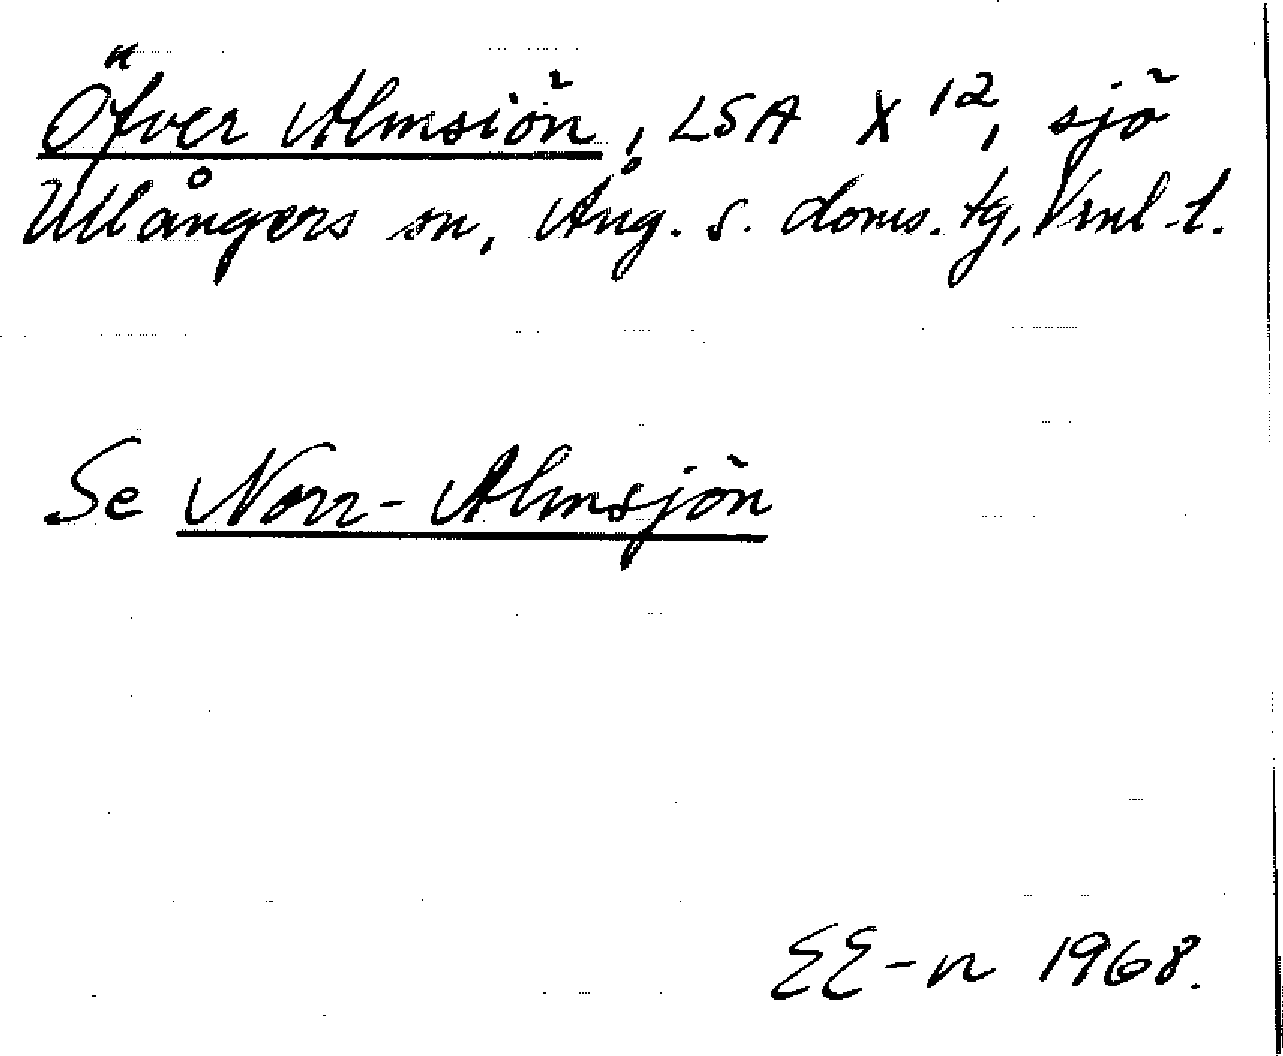 Öfver Almsiön, LSA X 12, sjö
Ullångers sn, Ång. s. doms. tg, Vrnl. l.
Se Norr-Almsjön
EE-n 1968.